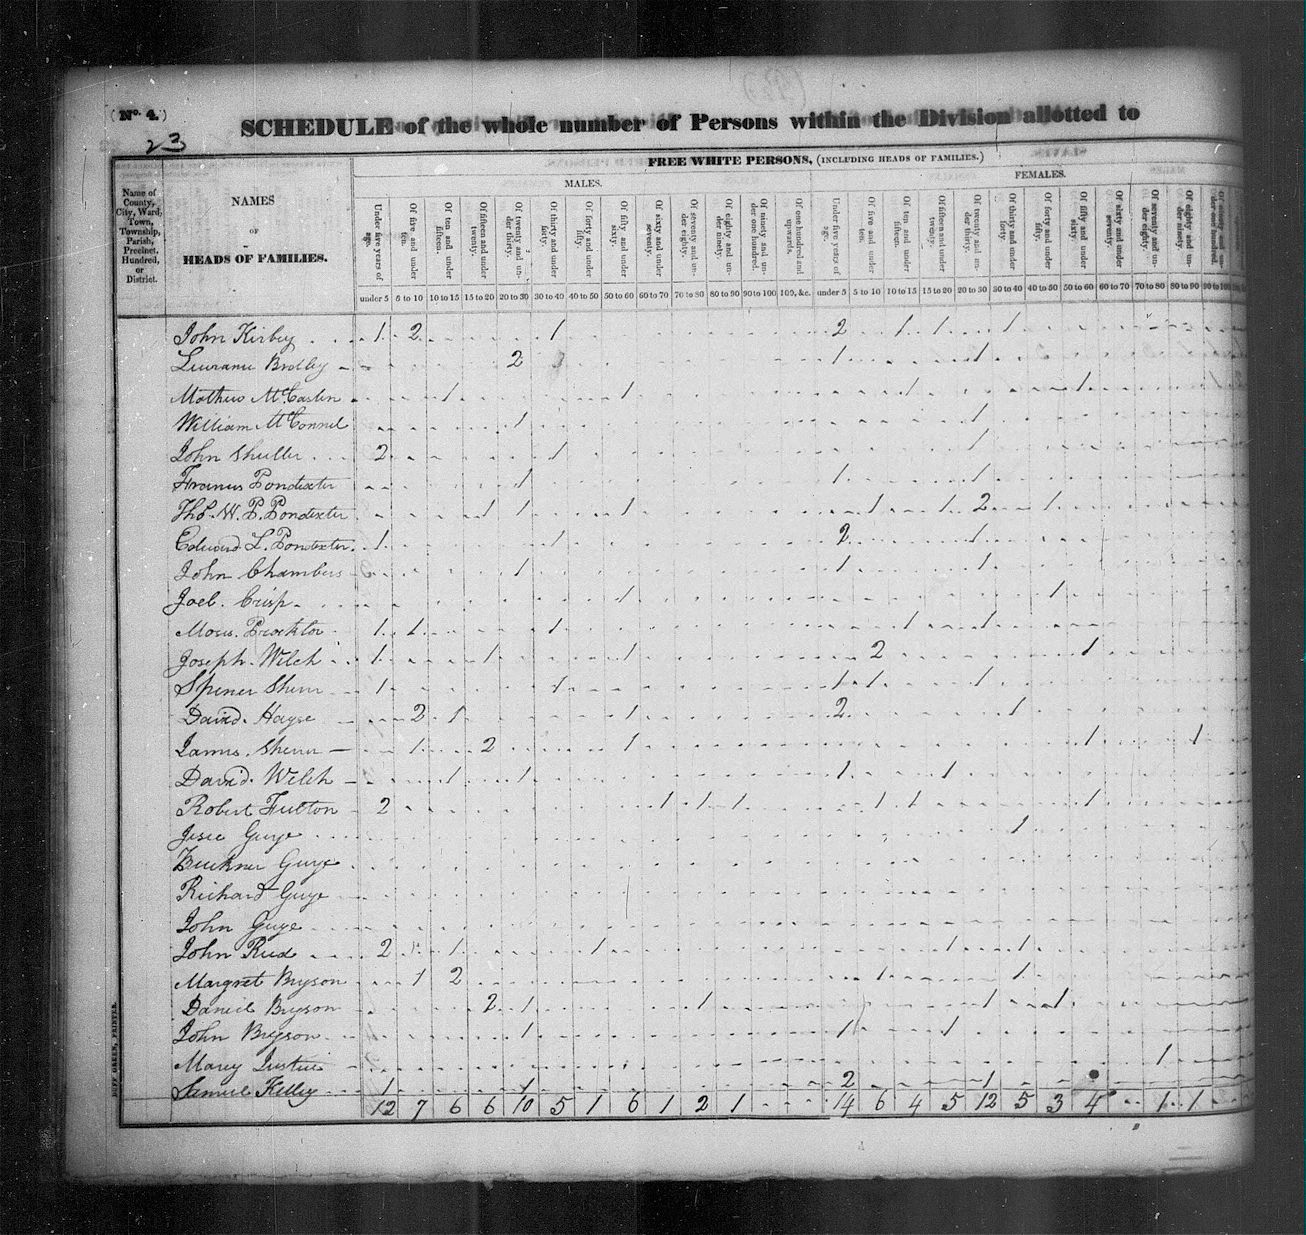 ( No. 4. )
23
SCHEDULE of the whole number of Persons within the Division allotted to
FREE WHITE PERSONS, (INCLUDING HEADS OF FAMILIES.)
MALES. FEMALES.
Name of County, City, Ward, Town, Township, Parish, Precinct, Hundred, or District.
NAMES
OF
HEADS OF FAMILIES.
Under five years of age. Of five and under ten. Of ten and under fifteen. Of fifteen and under twenty. Of twenty and under thirty. Of thirty and under forty. Of forty and under fifty. Of fifty and under sixty. Of sixty and under seventy. Of seventy and under eighty. Of eighty and under ninety. Of ninety and under one hundred. Of one hundred and upwards. Under five years of age. Of five and under ten. Of ten and under fifteen. Of fifteen and under twenty. Of twenty and under thirty. Of thirty and under forty. Of forty and under fifty. Of fifty and under sixty. Of sixty and under seventy. Of seventy and under eighty. Of eighty and under ninety. Of ninety and under one hundred.
under 5 5 to 10 10 to 15 15 to 20 20 to 30 30 to 40 40 to 50 50 to 60 60 to 70 70 to 80 80 to 90 90 to 100 100, &c. under 5 5 to 10 10 to 15 15 to 20 20 to 30 30 to 40 40 to 50 50 to 60 60 to 70 70 to 80 80 to 90 90 to 100
John Kirby 1 2 1 2 1 1 1
2 1 1
1 1 1 1
William McConnel 1 1
John 2 1 1
Pondexter 1 1 1
Tho. W. P. Pondexter 1 1 1 1 1 2 1
Edward L. Pondexter 1 1 2 1
John Chambers 1 1 1
Joel Crisp 1 1
Moses Prockter 1 1 1 1 1
Joseph Welch 1 1 1 2 1
1 1 1 1 1
David Hayse 2 1 1 2 1
James 1 2 1 1 1
David Welch 1 1 1 1
Robert Fulton 2 1 1 1 1 1 1
Jesse Guye 1
Buckner Guye
Richard Guye
John Guye
John Reed 2 1 1 1 1 1
Margret Bryson 1 2 1 1
Daniel Bryson 2 1 1 1 1
John Bryson 1 1 1
Marey 1
Samuel Kelley 1 1 2 1
12 7 6 6 10 5 1 6 1 2 1 14 6 4 5 12 5 3 4 1 1
DUFF GREEN, PRINTER.